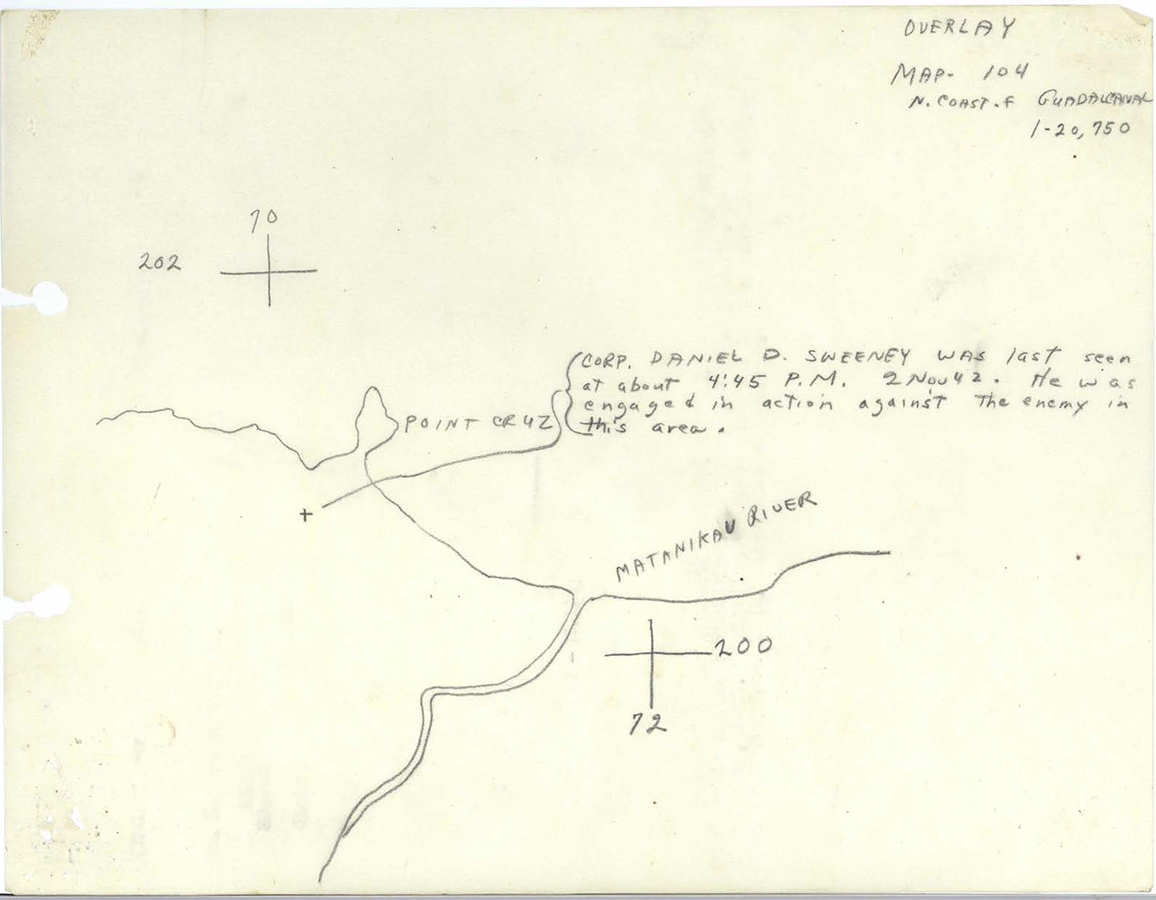 OVERLAY
MAP- 104
N. COAST. F GUADALCANAL
1-20,750
70
202
CORP. DANIEL D. SWEENEY WAS last seen
at about 4:45 P.M. 2 Nov 42. He was
engaged in action against the enemy in
this area.
POINT CRUZ
MATANIKAU RIVER
200
72